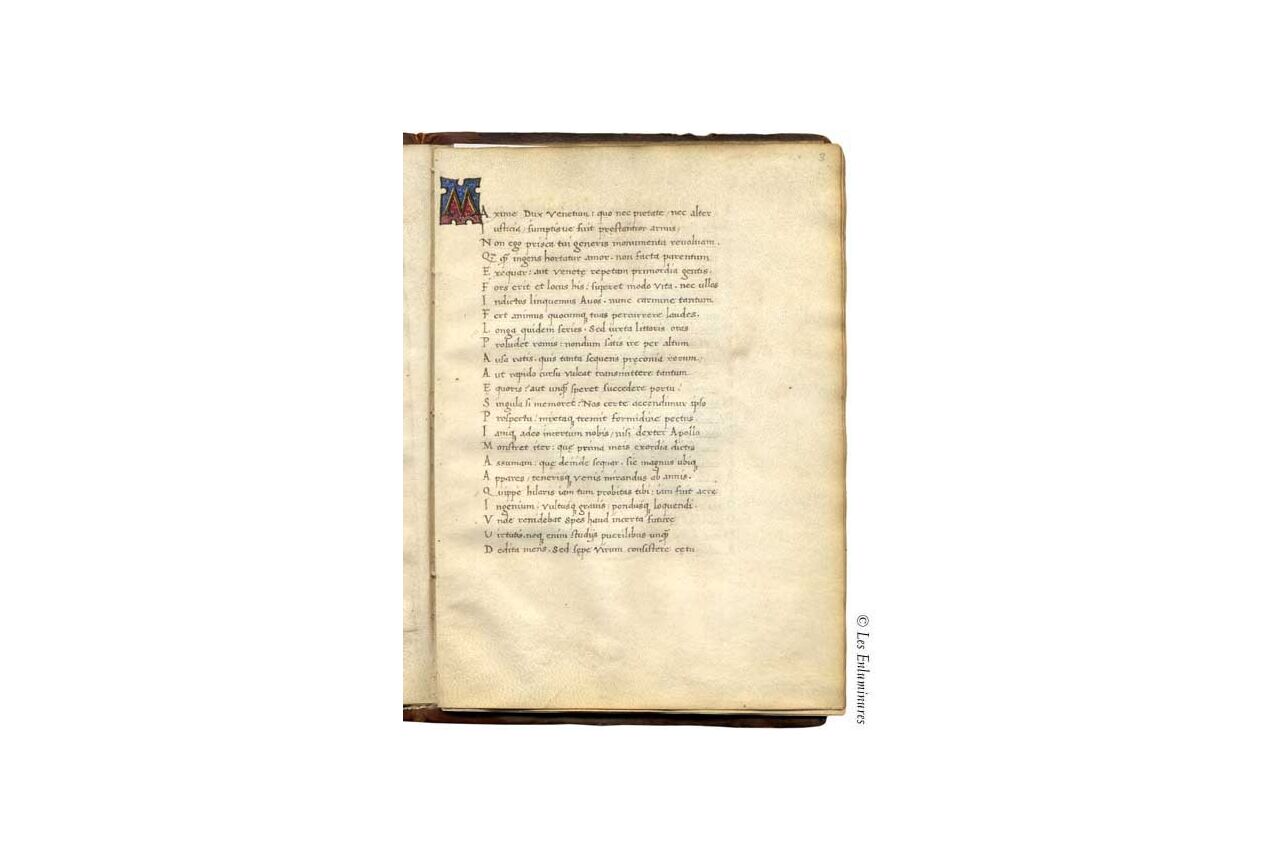 3
MAxime Dux Venetum: quo nec pietate / nec alter
Iusticia / sumptisue fuit prestantior armis;
Non ego prisca tui generis monumenta reuoluam.
Qꝫ ꝙ ingens hortatur amor. non facta parentum
Exequar: aut Venetę repetam primordia gentis.
Fors erit et locus his: superet modo vita. nec ullos
Indictos linquemus Auos. nunc carmine tantum
Fert animus quocunqꝫ tuas percurrere laudes.
Longa quidem series. Sed iuxta littoris oras
Proludet ramis: nondum satis ire per altum
Ausa ratis. quis tanta sequens preconia rerum;
Aut rapido cursu valeat transmittere tantum
Equoris? aut unꝙ speret succedere portu?
Singula si memoret? Nos certe accendimur ipso
Prospectu: mixtaqꝫ tremit formidine pectus.
Iamqꝫ adeo incertum nobis / nisi dexter Apollo
Monstret iter: que prima meis exordia dictis
Assumam: que deinde sequar. sic magnus ubiqꝫ
Appares / tenerisqꝫ venis mirandus ab annis.
Quippe hilaris iam tum probitas tibi: iam fuit acre
Ingenium. Vultusqꝫ grauis: pondusqꝫ loquendi.
Vnde renidebat Spes haud incerta futurę
Uirtutis. neqꝫ enim studijs puerilibus unꝙ
Dedita mens. Sed sępe virum consistere cetu
© Les Enluminures